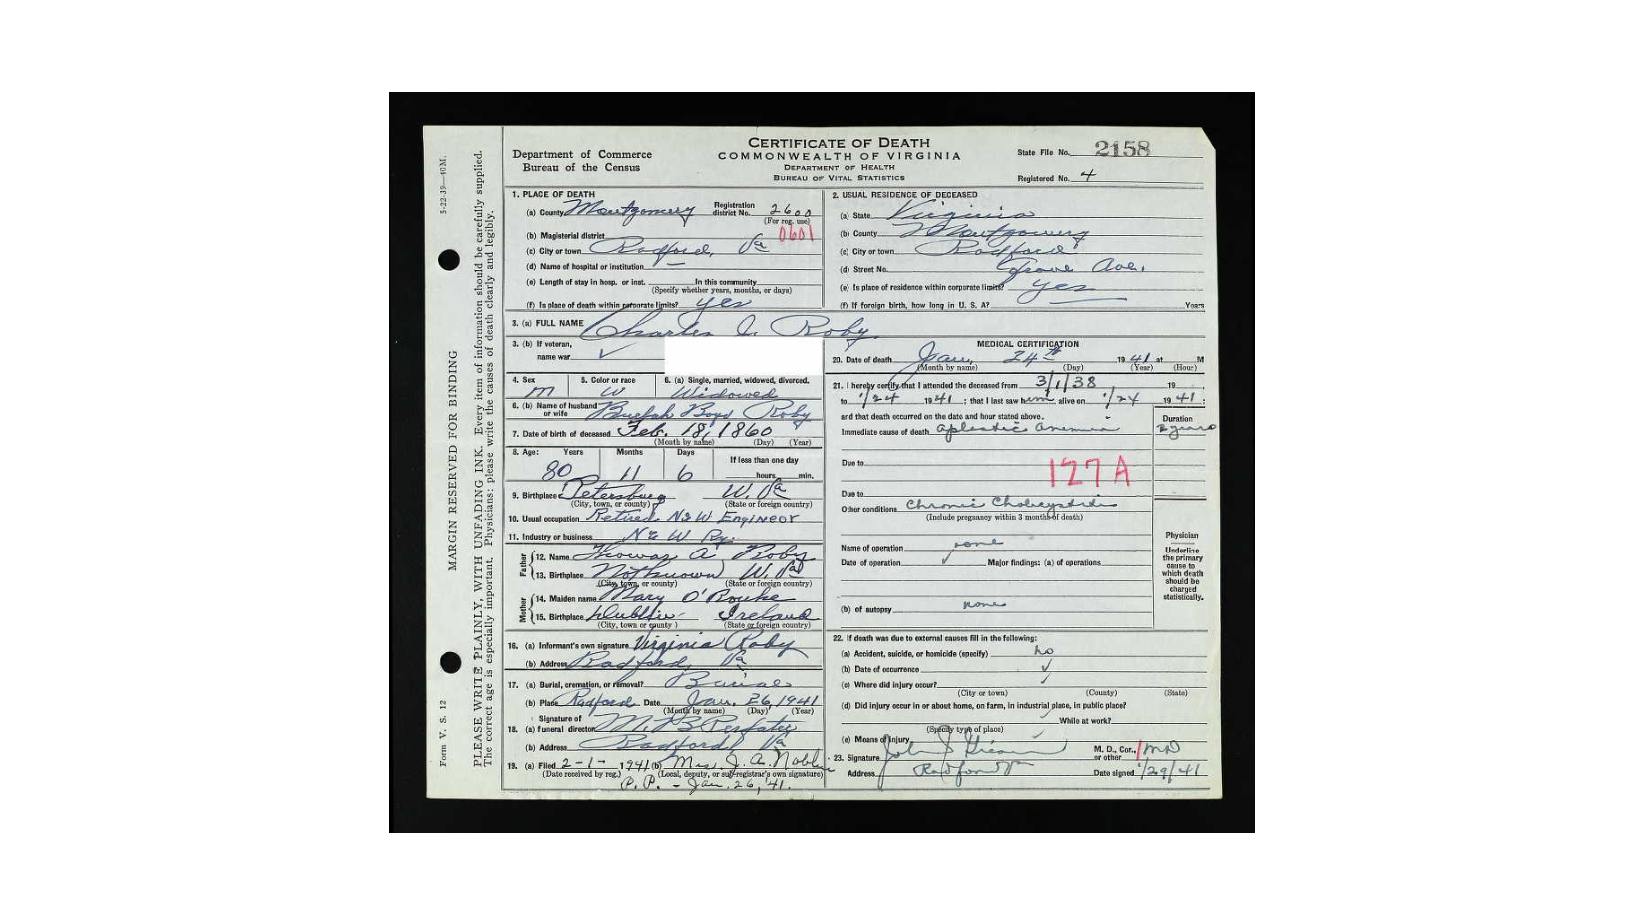 5-22-39—40M.
MARGIN RESERVED FOR BINDING
PLEASE WRITE PLAINLY, WITH UNFADING INK. Every item of information should be carefully supplied.
The correct age is especially important. Physicians: please write the causes of death clearly and legibly.
Form V. S. 12
Department of Commerce
Bureau of the Census
CERTIFICATE OF DEATH
COMMONWEALTH OF VIRGINIA
DEPARTMENT OF HEALTH
BUREAU OF VITAL STATISTICS
State File No. 2158
Registered No. 4
1. PLACE OF DEATH
(a) County Montgomery Registration district No. 2600
(For reg. use)
0601
(b) Magisterial district
(c) City or town Radford, Va
(d) Name of hospital or institution —
(e) Length of stay in hosp. or inst. In this community
(Specify whether years, months, or days)
(f) Is place of death within corporate limits? yes
2. USUAL RESIDENCE OF DECEASED
(a) State Virginia
(b) County Montgomery
(c) City or town Radford
(d) Street No. Grove Ave.
(e) Is place of residence within corporate limits? yes
(f) If foreign birth, how long in U. S. A.? Years
3. (a) FULL NAME Charles I. Roby
3. (b) If veteran,
name war ✓
4. Sex 5. Color or race 6. (a) Single, married, widowed, divorced.
M W Widowed
6. (b) Name of husband or wife Buelah Boyd Roby
7. Date of birth of deceased Feb. 18, 1860
(Month by name) (Day) (Year)
8. Age: Years Months Days If less than one day
80 11 6 hours min.
9. Birthplace Petersburg W. Va
(City, town, or county) (State or foreign country)
10. Usual occupation Retired N&W Engineer
11. Industry or business N & W Ry.
Father
12. Name Thomas A Roby
13. Birthplace Not known W. Va
(City, town, or county) (State or foreign country)
Mother
14. Maiden name Mary O'Rourke
15. Birthplace Dublin Ireland
(City, town or county) (State or foreign country)
16. (a) Informant's own signature Virginia Roby
(b) Address Radford, Va
17. (a) Burial, cremation, or removal? Burial
(b) Place Radford Date Jan. 26, 1941
(Month by name) (Day) (Year)
Signature of
18. (a) funeral director M. B.
(b) Address Radford, Va
19. (a) Filed 2-1- 1941 (b) Mrs. J. A. Noblin
(Date received by reg.) (Local, deputy, or sub-registrar's own signature)
P. P. - Jan. 26, '41.
MEDICAL CERTIFICATION
20. Date of death Jan. 24th 1941 at M
(Month by name) (Day) (Year) (Hour)
21. I hereby certify that I attended the deceased from 3/1/38 19
to 1/24 1941 ; that I last saw him alive on 1/24 1941 ;
and that death occurred on the date and hour stated above.
Duration
Immediate cause of death aplastic anemia 2 years
Due to 127A
Due to
Other conditions Chronic Cholecystitis
(Include pregnancy within 3 months of death)
Name of operation none
Date of operation Major findings: (a) of operations
(b) of autopsy none
Physician
Underline
the primary
cause to
which death
should be
charged
statistically.
22. If death was due to external causes fill in the following:
(a) Accident, suicide, or homicide (specify) no
(b) Date of occurrence ✓
(c) Where did injury occur?
(City or town) (County) (State)
(d) Did injury occur in or about home, on farm, in industrial place, in public place?
While at work?
(Specify type of place)
(e) Means of injury
23. Signature John S M. D., Cor., or other MD
Address Radford Va Date signed 1/29/41